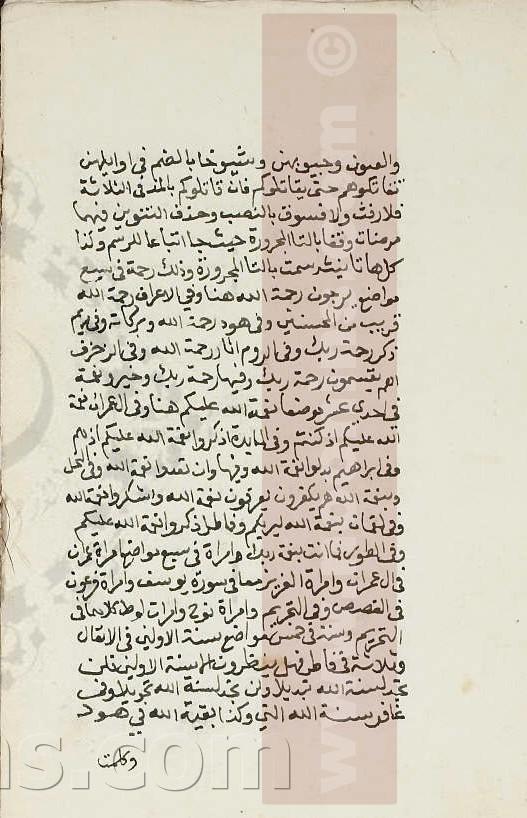 والعيون وجيوبهن وشيوخا بالضم في اوايلهن
تقاتلوهم حتى يقاتلوكم فان قاتلوكم بالمد في الثلاثة
فلا رفث ولا فسوق بالنصب وحذف التنوين فيهما
مرضات وقفا بالتا المجرورة حيث جا اتباعا للرسم وكذا
كل ها تانيث رسمت بالتا المجرورة وذلك رحمة في سبع
مواضع يرجون رحمة الله هنا وفي الاعراف رحمة الله
قريب من المحسنين وفي هود رحمة الله وبركاته وفي مريم
ذكر رحمة ربك وفي الروم اثار رحمة الله وفي الزخرف
اهم يقسمون رحمة ربك وفيها رحمة ربك وخير ونعمة
في احدى عشر موضعا نعمة الله عليكم هنا وفي ال عمران نعمة
الله عليكم اذ كنتم وفي المايدة اذكروا نعمة الله عليكم اذ هم
وفي ابراهيم بدلوا نعمة الله وفيها وان تعدوا نعمة الله وفي النحل
وبنعمة الله هم يكفرون يعرفون نعمة الله واشكروا نعمة الله
وفي لقمان بنعمة الله ليريكم وفاطر اذكروا نعمة الله عليكم
وفي الطور فما انت بنعمة ربك وامراة في سبع مواضع امراة عمران
في ال عمران وامراة العزيز معا في سورة يوسف وامراة فرعون
في القصص وفي التحريم وامراة نوح وامرات لوط كلاهما في
التحريم وسنة في خمس مواضع سنة الاولين في الانفال
وثلاثة في فاطر فهل ينظرون الا سنة الاولين فلن
تجد لسنة الله تبديلا ولن تجد لسنة الله تحويلا وفي
غافر سنة الله التي وكذا بقية الله في هود
وكلمت
www
ns.com
©